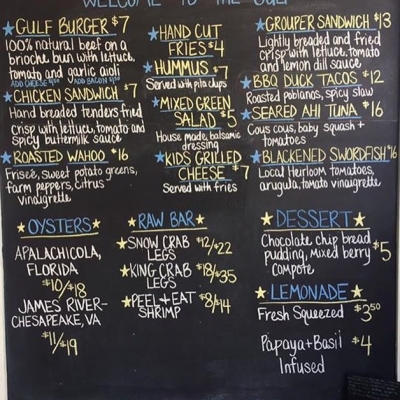 WELCOME TO THE GULF
★GULF BURGER $7
100% natural beef on a
brioche bun with lettuce,
tomato and garlic aioli
ADD CHEESE $1 ADD BACON $1
★CHICKEN SANDWICH $7
Hand breaded tenders fried
crisp with lettuce, tomato and
spicy buttermilk sauce
★ROASTED WAHOO $16
Friseé, sweet potato greens,
farm peppers, citrus
vinaigrette
★HAND CUT
FRIES $4
★HUMMUS $7
Served with pita chips
★MIXED GREEN
SALAD $5
House made, balsamic
dressing
★KIDS GRILLED
CHEESE $7
Served with fries
★GROUPER SANDWICH $13
Lightly breaded and fried
crisp with lettuce, tomato
and lemon dill sauce
★BBQ DUCK TACOS $12
Roasted poblanos, spicy slaw
★SEARED AHI TUNA $16
Cous cous, baby squash +
tomatoes
★BLACKENED SWORDFISH $16
Local Heirloom tomatoes,
arugula, tomato vinaigrette
★OYSTERS★
APALACHICOLA,
FLORIDA
$10/$18
JAMES RIVER-
CHESAPEAKE, VA
$11/$19
★RAW BAR★
★SNOW CRAB LEGS $12/$22
★KING CRAB LEGS $18/$35
★PEEL+EAT SHRIMP $8/$14
★DESSERT★
Chocolate chip bread
pudding, mixed berry $5
compote
★LEMONADE★
Fresh Squeezed $3.50
Papaya+Basil $4
Infused